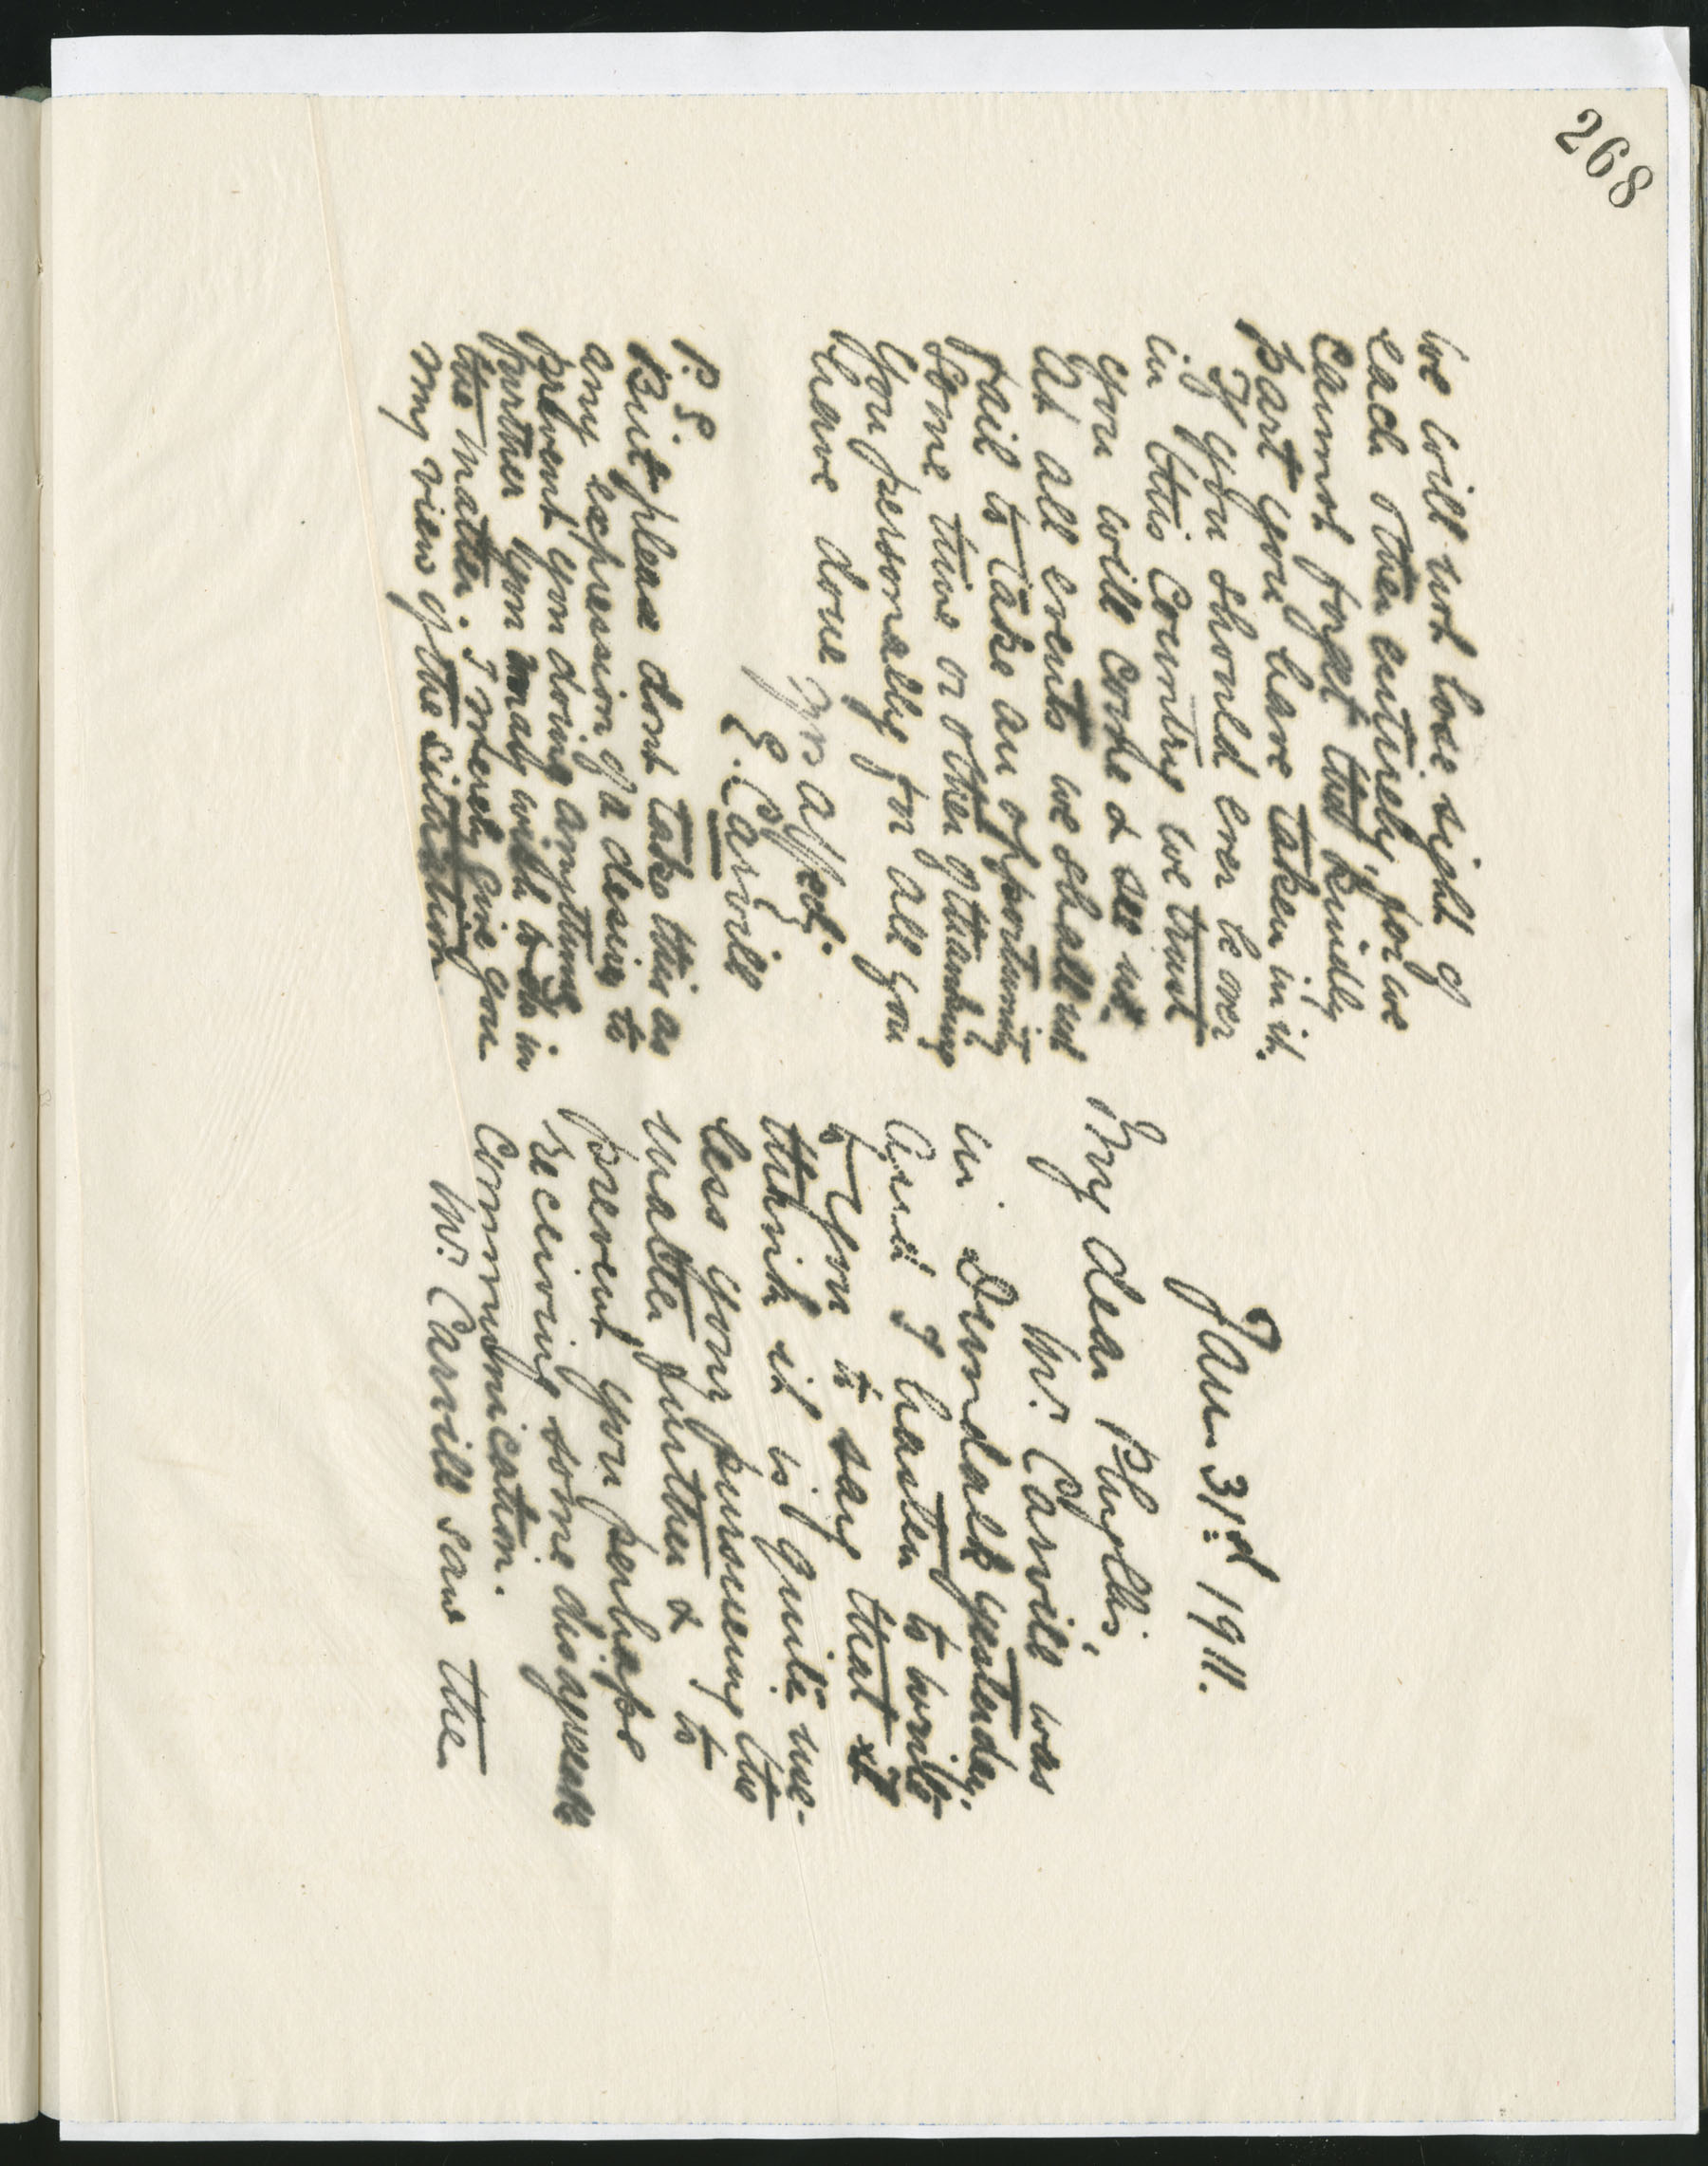 268
we will not lose sight of
each other entirely, for we
cannot forget the kindly
part you have taken in it.
If you should ever be over
in this Country we trust
you will come & see us.
At all events we shall not
fail to take an opportunity
some time or other of thanking
you personally for all you
have done
Yrs affect.
E. Carvill
P.S.
But please dont take this as
any expression of a desire to
prevent you doing anything
further you may wish to do in
the matter. I merely give you
my view of the situation
Jan 31st 1911.
My dear Phyllis,
Mr. Carvill was
in Dundalk yesterday.
and I hasten to write
to you to say that
I think it is quite use-
less your pursueing the
matter further & to
prevent you perhaps
receiving some disagreeable
communication.
Mr. Carvill saw the